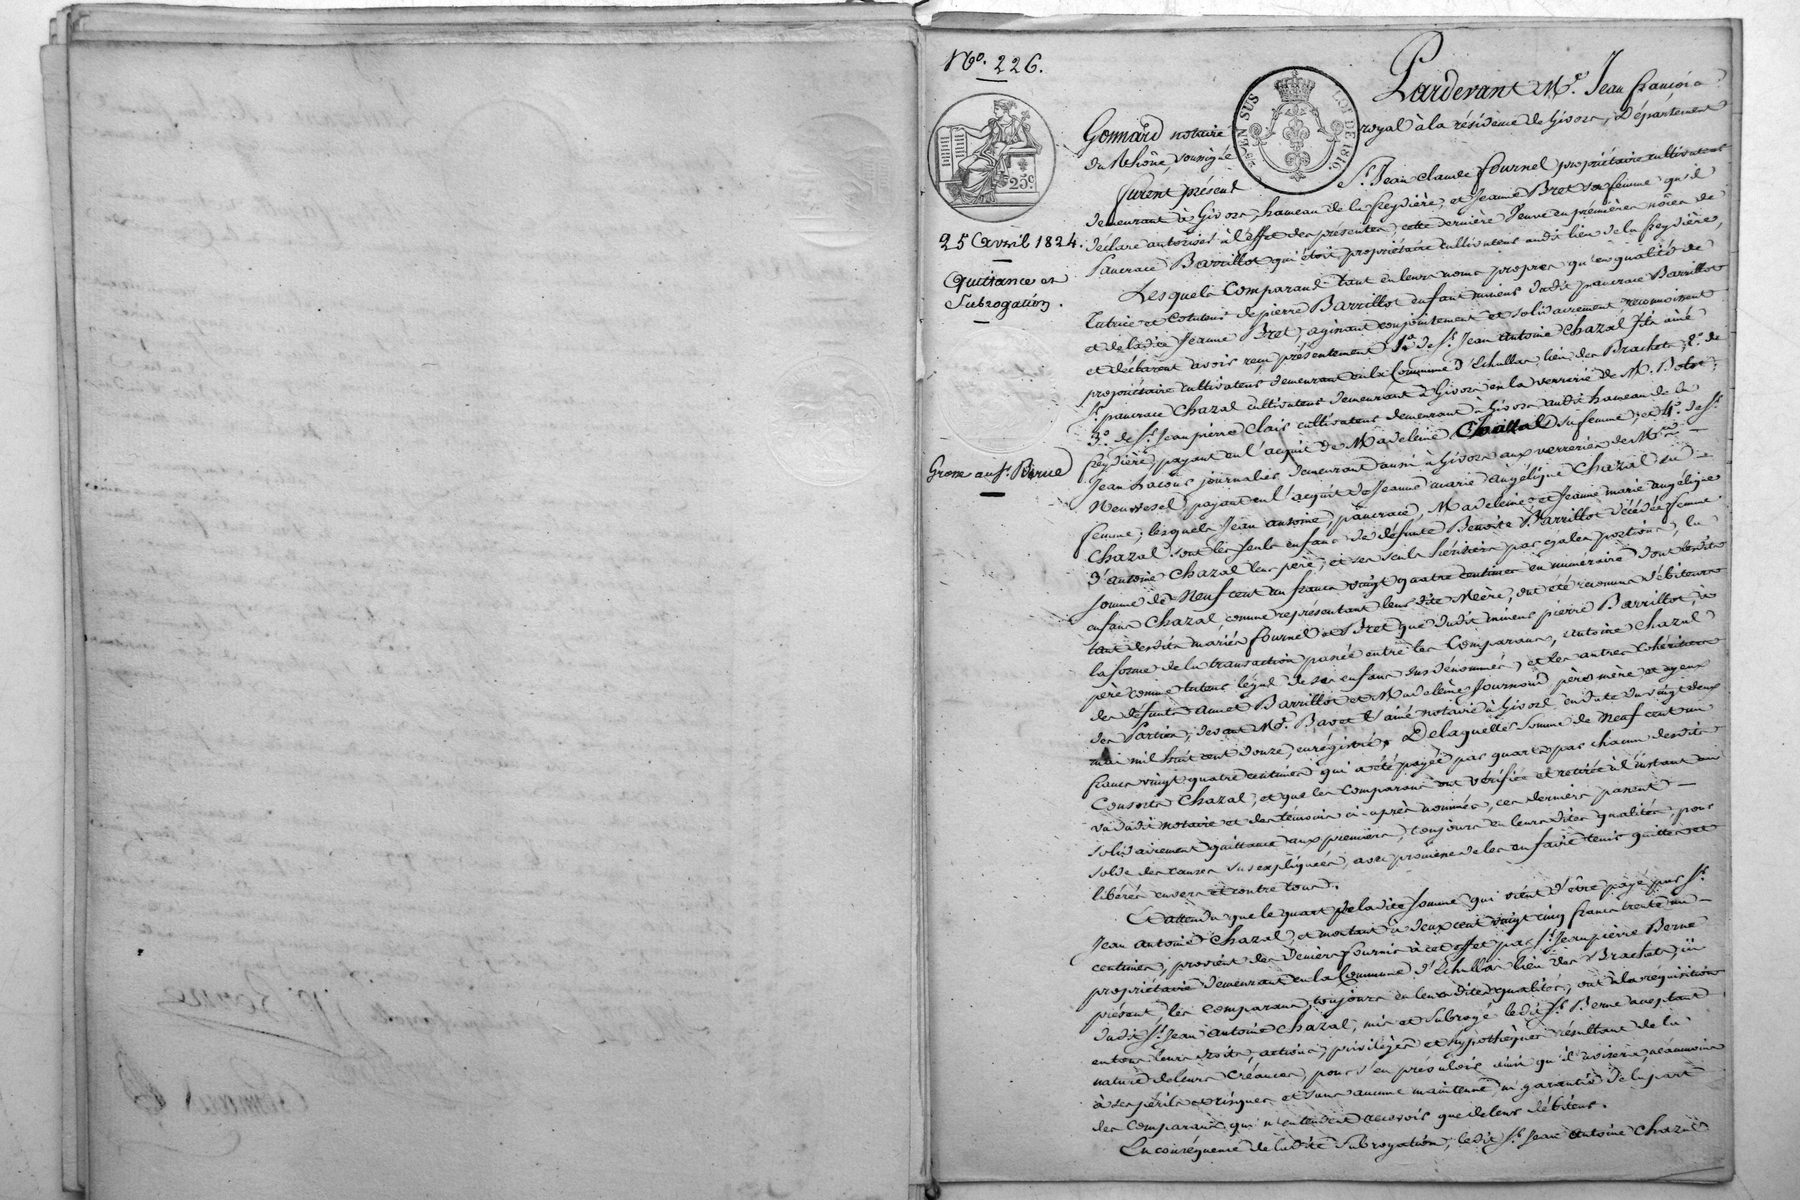 N.o 226.
25 C.
25 EN SUS
LOI DE 1816.
25 Avril 1824.
Quittance et
Subrogation.
Grosse au S.r Berne
Pardevant M.e Jean françois
Gonnard, notaire royal à la résidence de Givors, Département
du Rhône, soussigné
furent présent S.r Jean claude fournel propriétaire cultivateur
demeurant à Givors, hameau de la freydière, et Jeanne Bret sa femme qu'il
déclare autoriser à l'effet des présentes, cette dernière veuve en premières nôces de
Pancrace Barrillot qui étoit propriétaire cultivateur audit lieu de la freydière,
Lesquels Comparans tant en leurs noms propres qu'en qualité de
tutrice et Cotuteur de pierre Barrillot enfant mineur dudit pancrace Barrillot
et de ladite Jeanne Bret, agissant conjointement et solidairement, reconnoissent
et déclarent avoir reçu présentement 1.o de S.r Jean Antoine Chazal fils ainé
propriétaire cultivateur demeurant en la Commune d'Echallas, lieu des Brachets; 2.o de
S.r pancrace Chazal cultivateur demeurant à Givors en la verrerie de M. Bolot;
3.o de S.r Jean pierre Clair cultivateur demeurant à Givors audit hameau de la
freydière, payant en l'acquit de Madeleine Chazal sa femme; et 4.o de S.r
Jean journalier demeurant aussi à Givors aux verreries de M.rs
Neuvesel, payant en l'acquit de Jeanne marie angélique Chazal sa
femme; lesquels Jean antoine, pancrace, Madeleine et Jeanne marie angélique
Chazal sont les seuls enfans de défunte Benoite Barrillot décédée femme
d'antoine Chazal leur père, et ses seuls héritiers par égales portions, la
somme de Neuf cent un francs vingt quatre centimes en numéraire dont lesdits
enfans Chazal, comme représentant leur dite Mère, ont été reconnus débiteurs
tant desdits mariés fournel et Bret que dudit mineur pierre Barrillot, à
la forme de la transaction passée entre les Comparans, Antoine Chazal
père comme tuteur légal de ses enfans susdénommés, et les autres Cohéritiers
des défunts Barrillot et Madeleine père mère et ayeux
des Parties, devant M.e l'ainé notaire à Givors, en date du vingt deux
mai mil huit cent douze, enregistré; De laquelle somme de Neuf cent un
francs vingt quatre centimes qui a été payée par quart par chacun desdits
Consorts Chazal, et que les Comparans ont vérifiée et retirée à l'instant au
vu dudit notaire et des témoins ci-après nommés, ces derniers passent
solidairement quittance aux premiers, toujours en leurs dites qualités, pour
solde des causes susexpliquées, avec promesse de les en faire tenir quittes et
libérés envers et contre tous.
Et attendu que le quart de ladite somme qui vient d'être payé par S.r
Jean antoine Chazal, et montant à deux cent vingt cinq francs trente un
centimes, provient des deniers fournis à cet effet par S.r Jean pierre Berne
propriétaire demeurant en la Commune d'Echallas lieu des Brachets, ici
présent, les comparans, toujours en leurs dites qualités, ont à la réquisition
dudit S.r Jean Antoine Chazal, mis et subrogé ledit S.r Berne acceptant
en tous leurs droits, actions, privilèges et hypothèques résultant de la
nature de leurs créances, pour s'en prévaloir ainsi qu'il avisera, néanmoins
à ses périls et risques et sans aucune maintenue ni garantie de la part
des comparans qui n'entendent recevoir que de leur débiteur.
En conséquence de ladite Subrogation, ledit S.r Jean Antoine Chazal